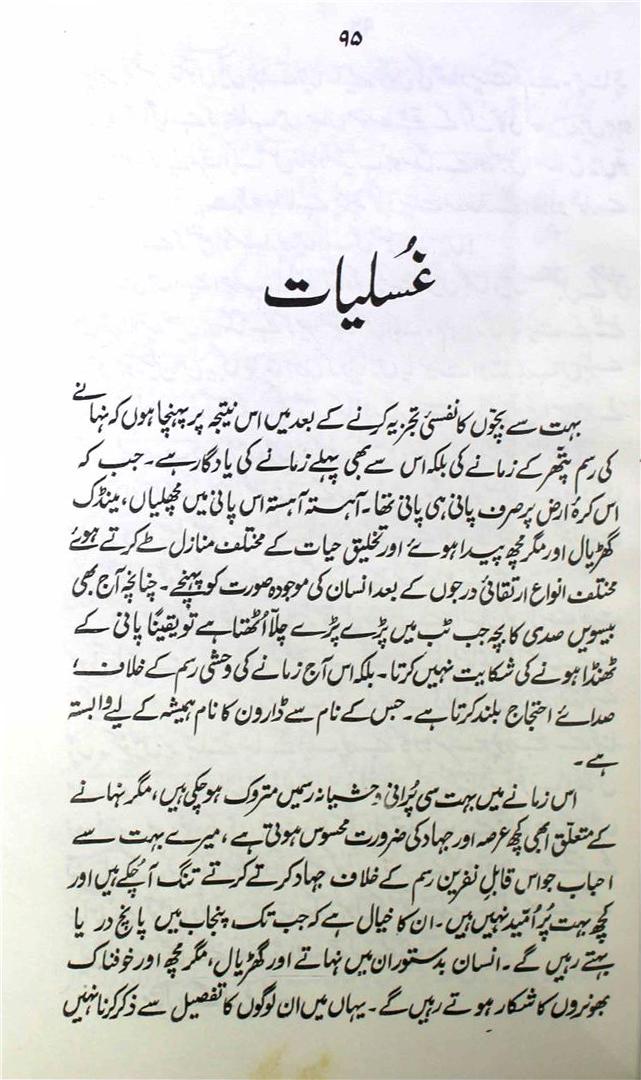 ۹۵
غُسلیات
بہت سے بچّوں کا نفسیٔ تجزیہ کرنے کے بعد میں اس نتیجہ پر پہنچا ہوں کہ نہانے
کی رسم پتّھر کے زمانے کی بلکہ اس سے بھی پہلے زمانے کی یادگار ہے۔ جب کہ
اس کرۂ ارض پر صرف پانی ہی پانی تھا۔ آہستہ آہستہ اس پانی میں مچھلیاں، مینڈک
گھڑیال اور مگر مچھ پیدا ہوئے اور تخلیق حیات کے مختلف منازل طے کرتے ہوئے
مختلف انواع ارتقائی درجوں کے بعد انسان کی موجودہ صورت کو پہنچے۔ چنانچہ آج بھی
بیسویں صدی کا بچہ جب ٹب میں پڑے پڑے چلّا اُٹھتا ہے تو یقیناً پانی کے
ٹھنڈا ہونے کی شکایت نہیں کرتا۔ بلکہ اس آج زمانے کی وحشی رسم کے خلاف،
صدائے احتجاج بلند کرتا ہے۔ جس کے نام سے ڈارون کا نام ہمیشہ کے لیے وابستہ
ہے۔
اس زمانے میں بہت سی پُرانی وحشیانہ رسمیں متروک ہو چکی ہیں، مگر نہانے
کے متعلق ابھی کچھ عرصہ اور جہاد کی ضرورت محسوس ہوتی ہے، میرے بہت سے
احباب جو اس قابلِ نفرین رسم کے خلاف جہاد کرتے کرتے تنگ آچُکے ہیں اور
کچھ بہت پُر اُمّید نہیں ہیں۔ ان کا خیال ہے کہ جب تک پنجاب میں پانچ دریا
بہتے رہیں گے۔ انسان بدستور ان میں نہاتے اور گھڑیال، مگر مچھ اور خوفناک
بھونروں کا شکار ہوتے رہیں گے۔ یہاں میں ان لوگوں کا تفصیل سے ذکر کرنا نہیں